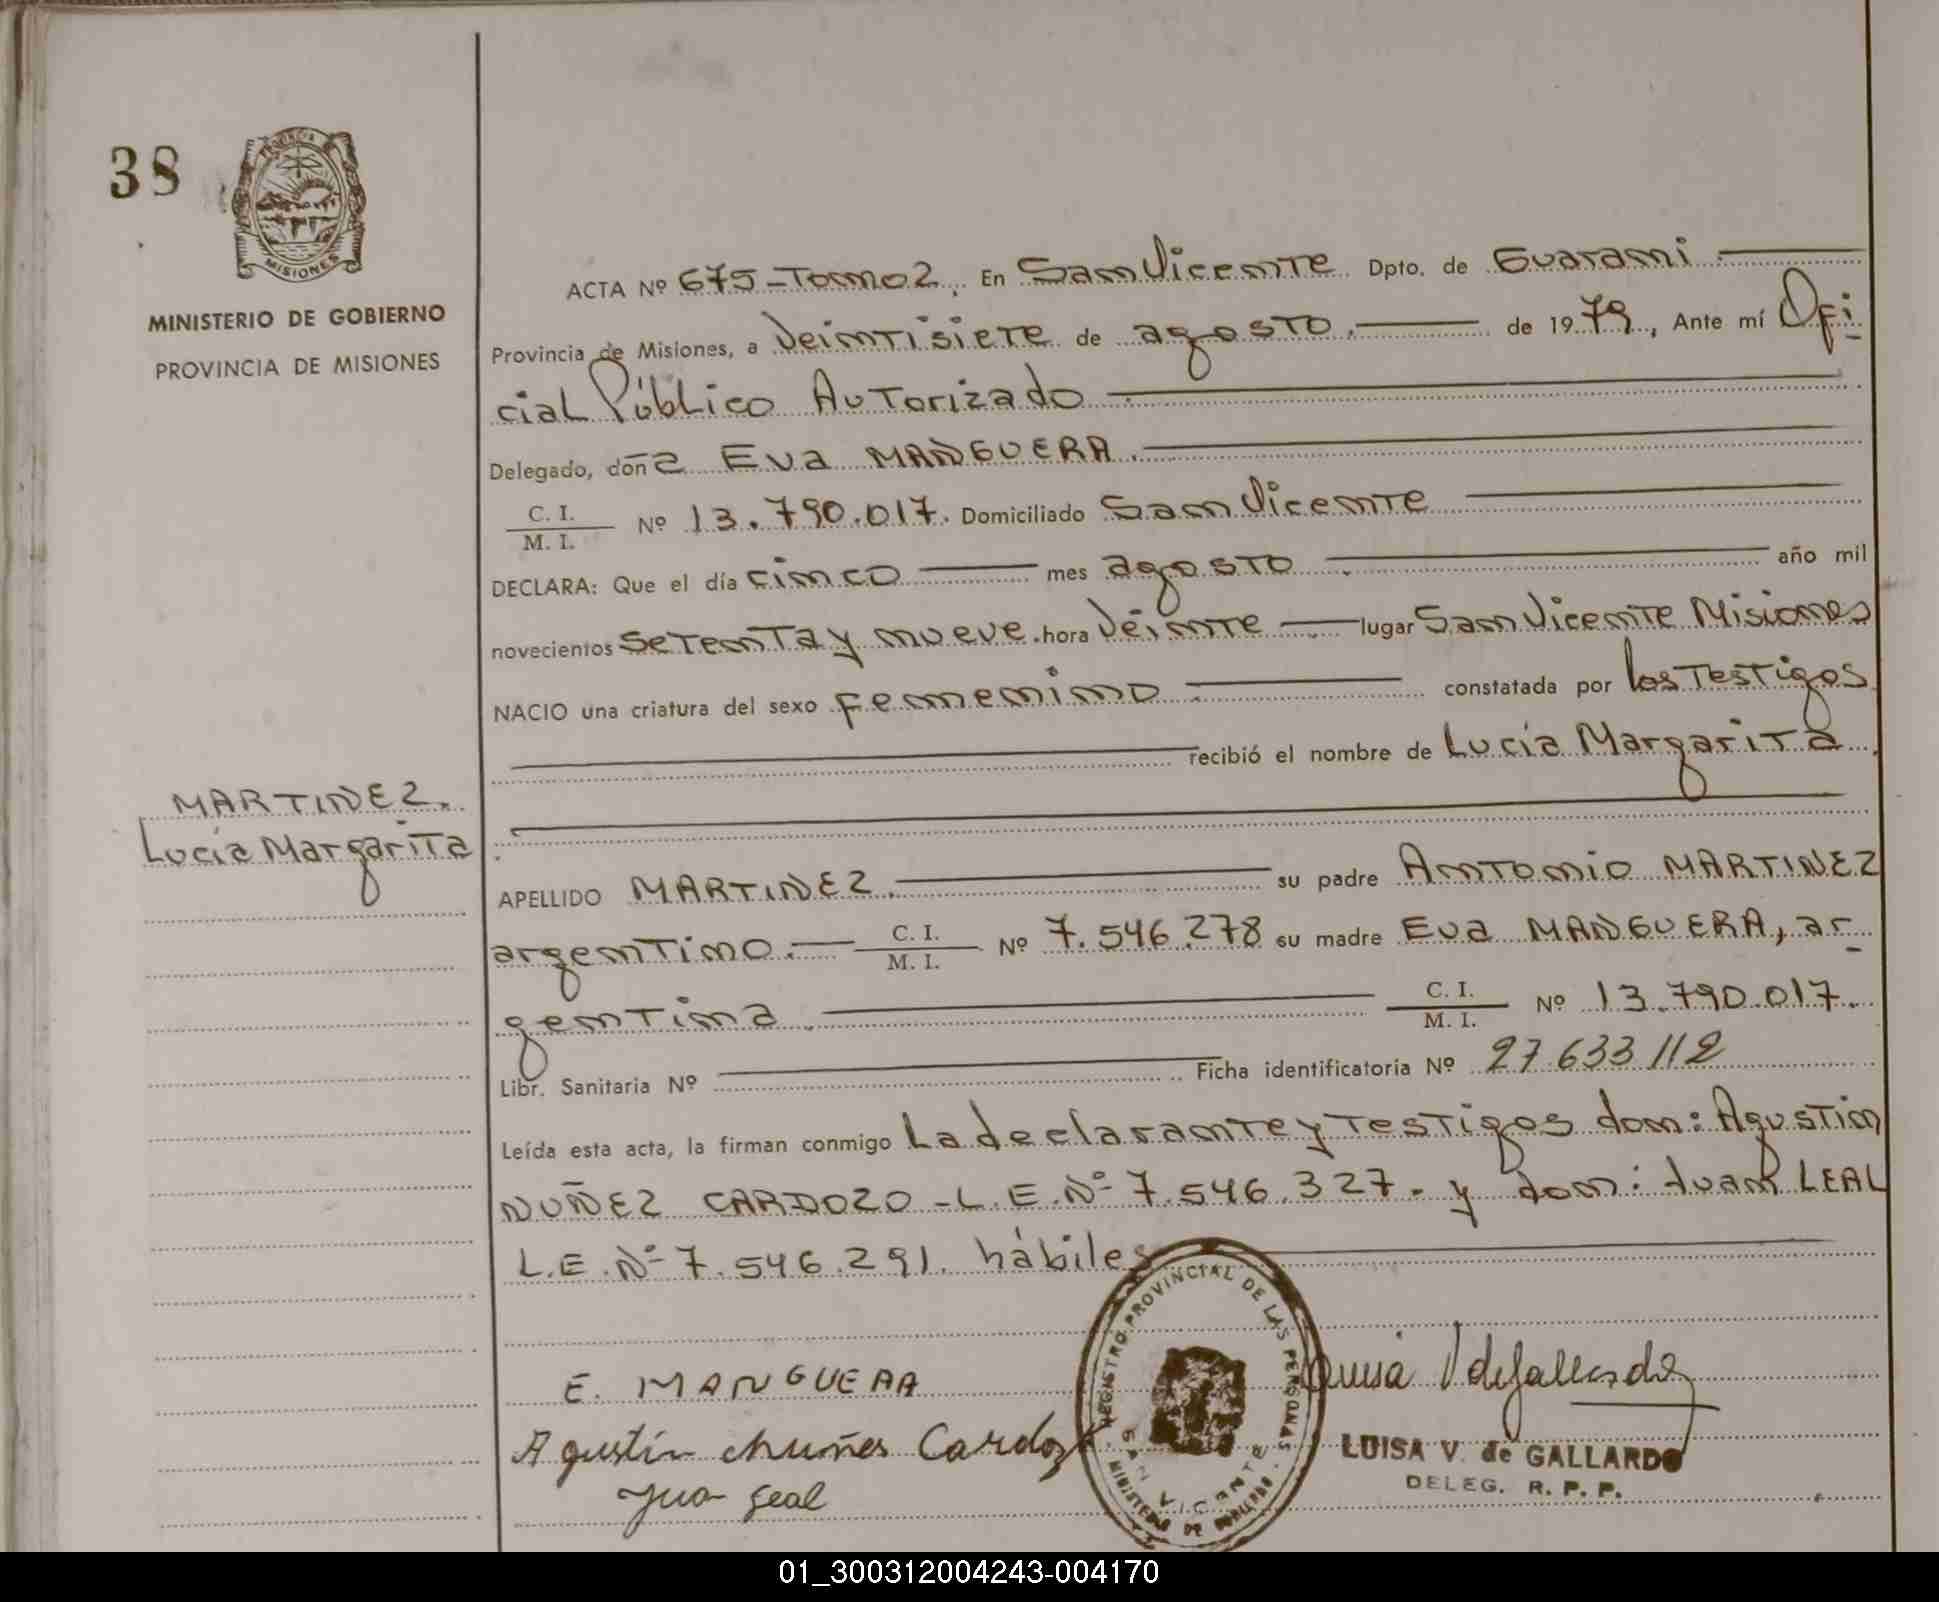 38
PROVINCIA
MISIONES
MINISTERIO DE GOBIERNO
PROVINCIA DE MISIONES
ACTA Nº 675-Tomo 2, En San Vicente Dpto. de Guarani
Provincia de Misiones, a Veintisiete de agosto. de 1979, Ante mí Ofi-
cial Público Autorizado
Delegado, doña Eva MANGUERA.
C. I.
M. I. Nº 13.790.017. Domiciliado San Vicente
DECLARA: Que el día cinco mes agosto año mil
novecientos setenta y nueve. hora Veinte lugar San Vicente Misiones
NACIO una criatura del sexo femenino constatada por los Testigos
recibió el nombre de Lucía Margarita
MARTINEZ.
Lucía Margarita
APELLIDO MARTINEZ. su padre Antonio MARTINEZ
argentino. C. I.
M. I. Nº 7.546.278 su madre Eva MANGUERA, ar-
gentina C. I.
M. I. Nº 13.790.017.
Libr. Sanitaria Nº Ficha identificatoria Nº 27.633.112
Leída esta acta, la firman conmigo La declarante y Testigos don: Agustin
NUÑEZ CARDOZO - L.E.Nº 7.546.327. y don: Juan LEAL
L.E.Nº 7.546.291. hábiles
E. MANGUERA
Agustín Nuñes Cardozo
Juan Leal
REGISTRO PROVINCIAL DE LAS PERSONAS
SAN VICENTE
MINISTERIO DE GOBIERNO
Luisa V de Gallardo
LUISA V. de GALLARDO
DELEG. R. P. P.
01_300312004243-004170